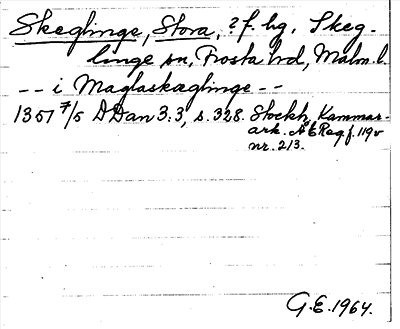 Skeglinge, Stora, ? f. hg. Skeg-
linge sn, Frosta hd, Malm. l.
-- i Maglaskæglinge --
1351 7/5 DDan 3:3, s. 328. Stockh. Kammar-
ark. AE Reg f. 119v
nr. 213.
G.E. 1964.